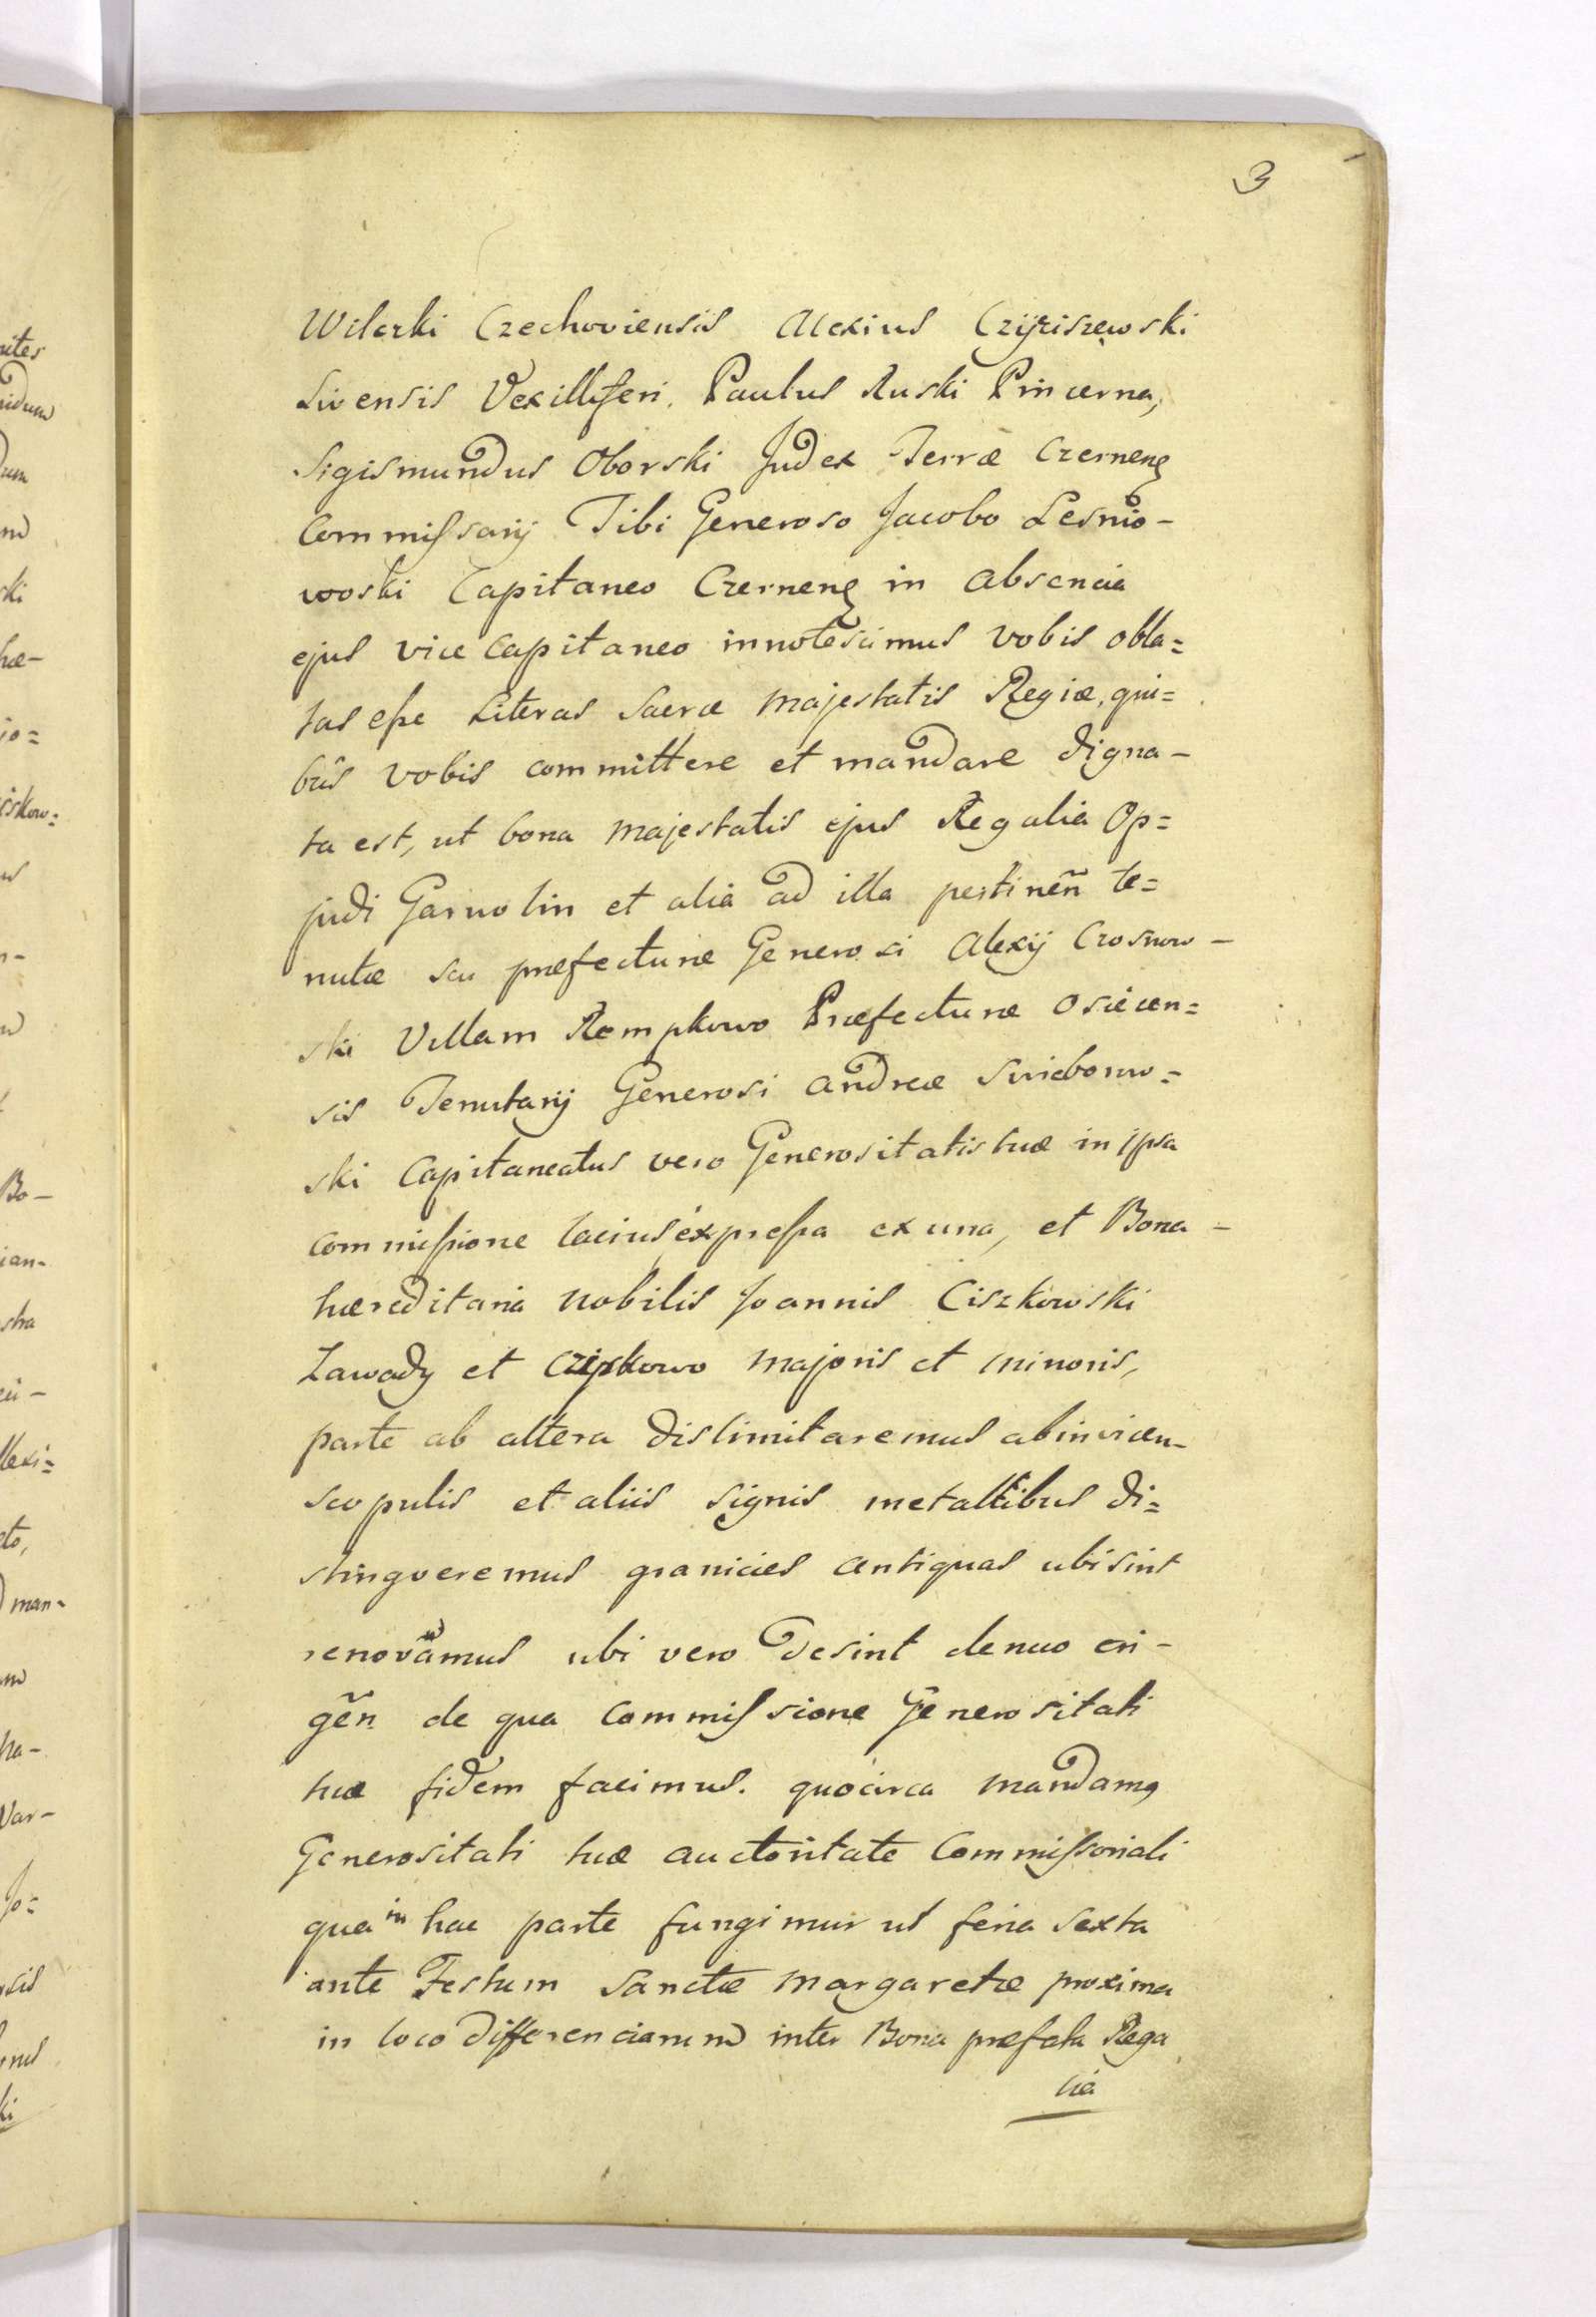 3
Wilczki Czechoviensis Alexius Czÿziszewski
Livensis Vexilliferi. Paulus Ruski Pincerna,
Sigismundus Oborski Judex Terræ Czernenꝫ
Commissarij Tibi Generoso Jacobo Lesnio-
woski Capitaneo Czernenꝫ in absencia
ejus vice Capitaneo innotescimus vobis obla=
tas esse Literas Sacræ Majestatis Regiæ, qui=
bus vobis committere et mandare digna-
ta est, ut bona Majestatis ejus Regalia Op=
pidi Garwolin et alia ad illa pertineñ te=
nutæ seu præfecturæ Generosi Alexij Crosnow-
ski Villam Rempkowo Præfecturæ Osiecen=
sis Tenutarij Generosi Andreæ Swiebonw=
ski Capitaneatus vero Generositatis tuæ in ipsa
commissione lacius expressa ex una, et Bona-
hæreditaria Nobilis Joannis Ciszkowski
Zawady et Czipkowo majoris et minoris,
parte ab altera dislimitaremus abinvicem-
scopulis et aliis signis metallibus di=
stingveremus granicies antiquas ubi sint
renovamus ubi vero desint denuo eri-
geñ de qua commissione Generositati
tuæ fidem facimus. quocirca mandamꝫ
Generositati tuæ auctoritate Commissoriali
qua in hac parte fungimur ut feria sexta
ante Festum Sanctæ Margaretæ proxima
in loco differenciarum inter Bona præfata Rega
lia
nites
ski
hæ-
jo=
iskow:
Bo-
ian-
stra
llexi=
man-
ha-
Var-
Jo=